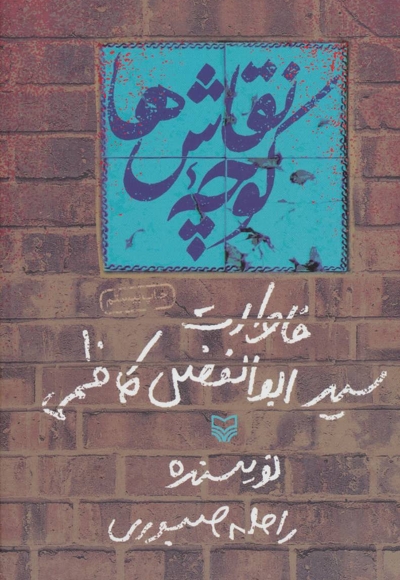 کوچه
نقاش‌ها
چاپ بیستم
خاطرات
سید ابوالفضل کاظمی
نویسنده
راحله صبوری